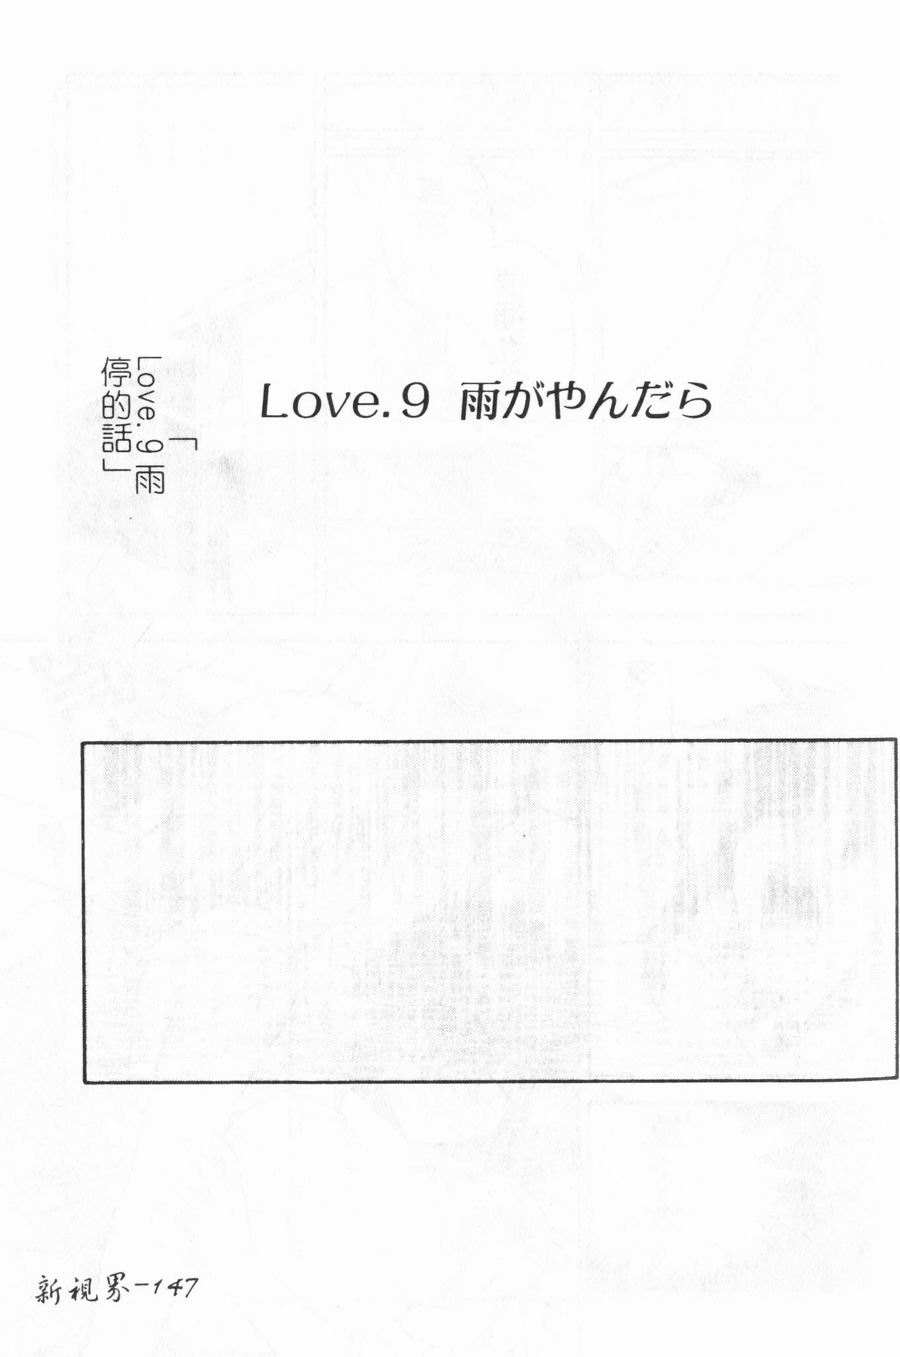 Love.9 雨がやんだら
「
Love.9雨
停的話」
新視界-147